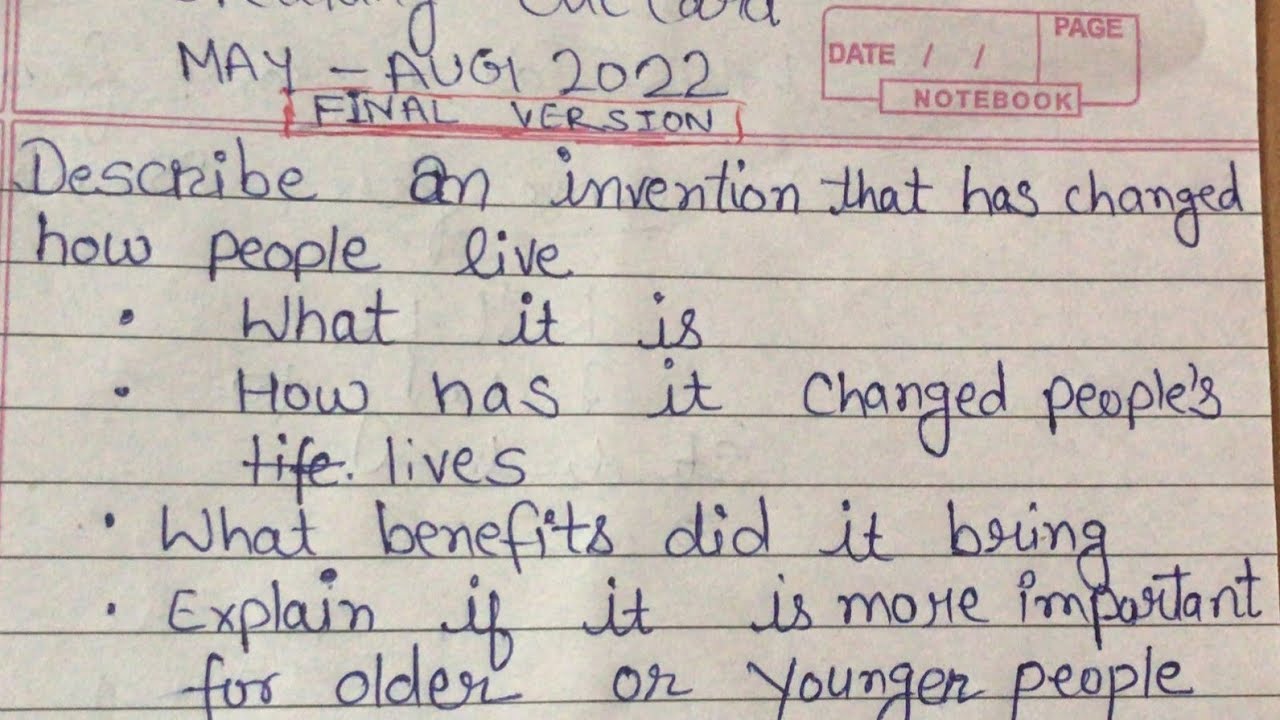 Cue Card
MAY - AUG 2022
FINAL VERSION
DATE / /
PAGE
NOTEBOOK
Describe an invention that has changed
how people live
• What it is
• How has it changed people's
life. lives
• What benefits did it bring
• Explain if it is more important
for older or younger people